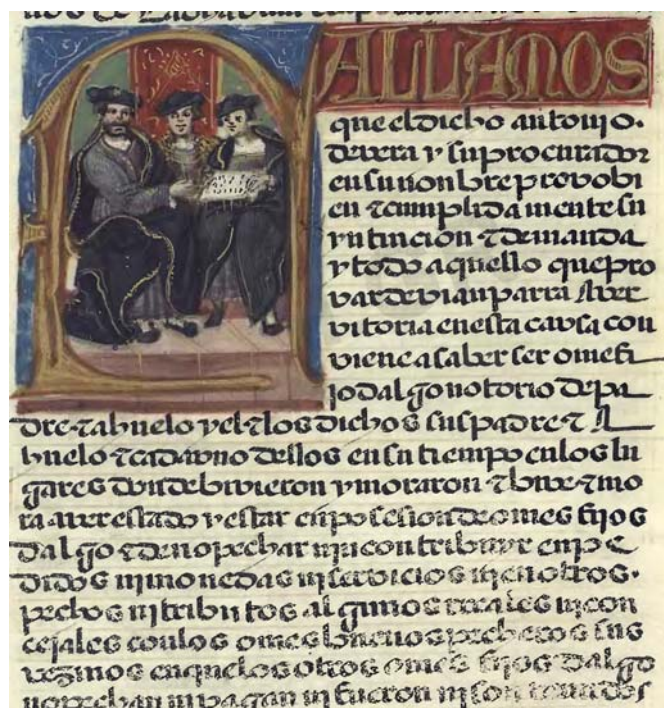 FALLAMOS
que el dicho antonio.
de vera y su procurador
en su nonbre provo bi
en τ cumplida mente su
yntincion τ demanda
y todo aquello que pro
var devian parra Aver
vitoria en esta cavsa con
viene a saber ser ome fi
jo dalgo notorio de pa
dre τ ahuelo y el τ los dichos su padre τ A
huelo τ cada vno dellos en su tiempo en los lu
gares donde bivieron y moraron τ bive τ mo
ra aver estado y estar en posesion de omes fijos
dalgo τ de no pechar ni n contribuyr en pe
didos ni monedas ni servicios ni en otros.
pechos ni tributos algunos reales ni con
cejales con los omes buenos pecheros sus
vezinos en que los otros omes fijos dalgo
no pechan ni pagan ni fueron ni son tenudos